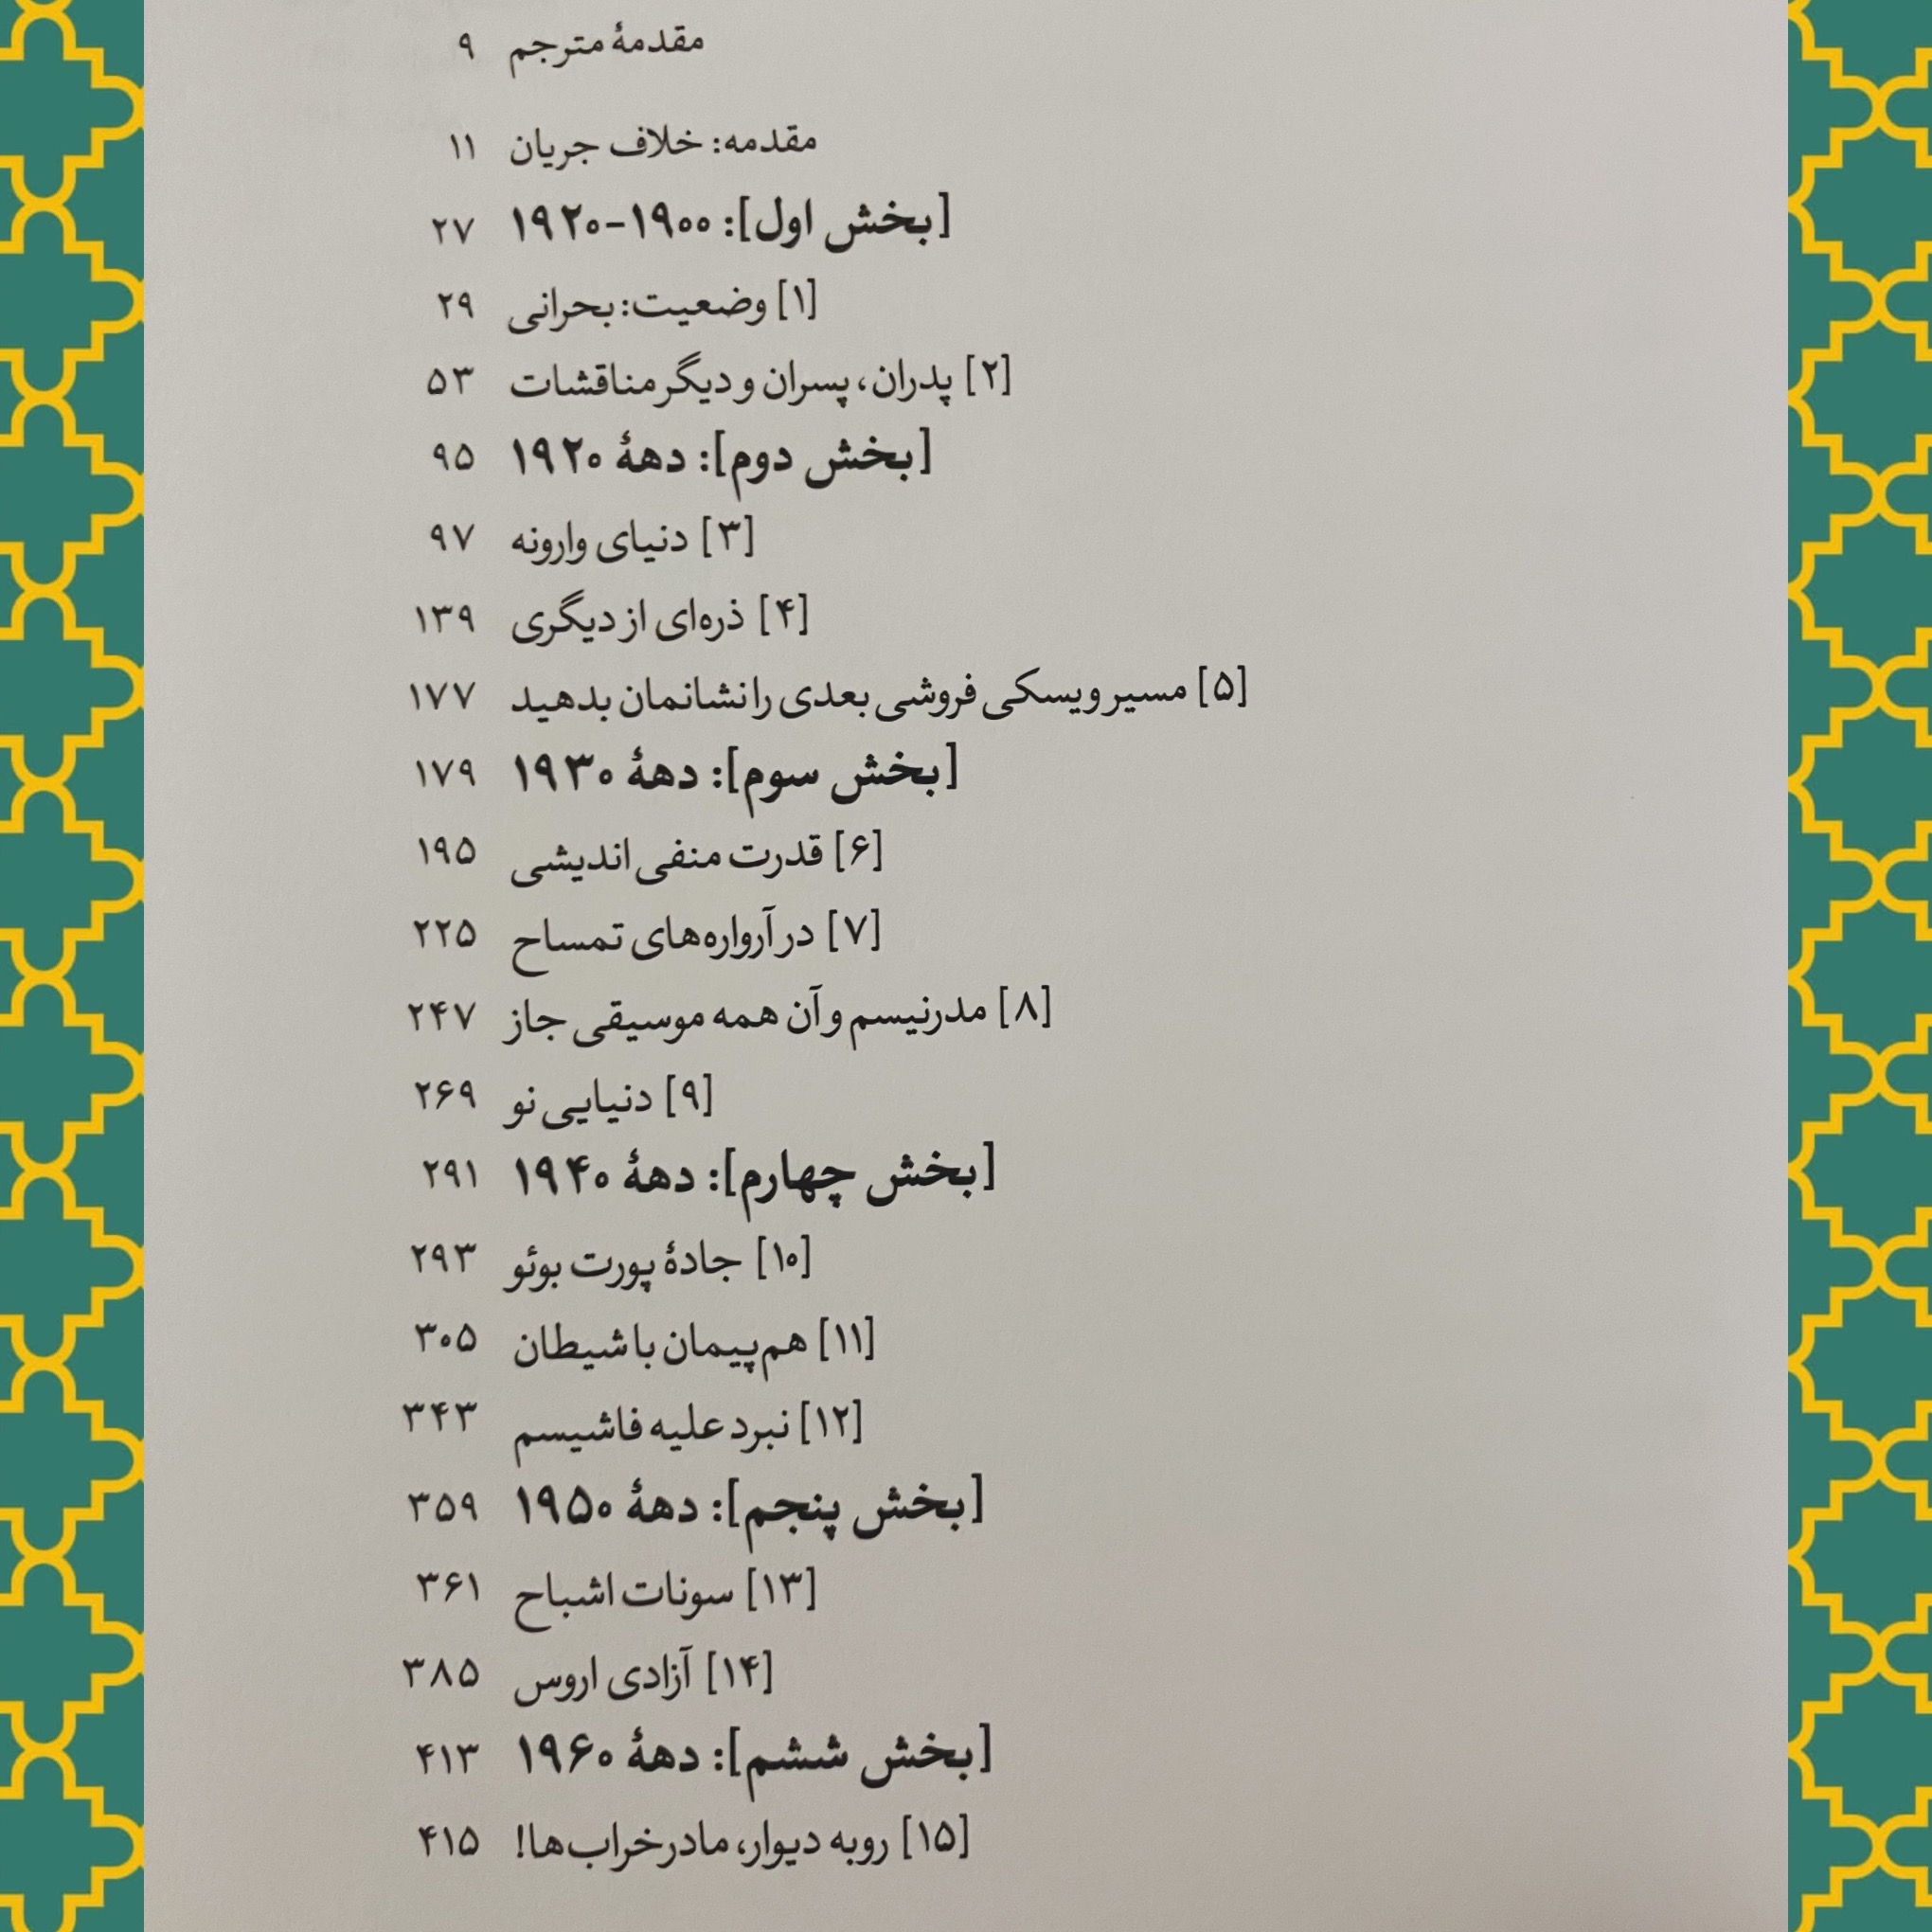 مقدمهٔ مترجم ۹
مقدمه: خلاف جریان ۱۱
[بخش اول]: ۱۹۰۰-۱۹۲۰ ۲۷
[۱] وضعیت: بحرانی ۲۹
[۲] پدران، پسران و دیگر مناقشات ۵۳
[بخش دوم]: دههٔ ۱۹۲۰ ۹۵
[۳] دنیای وارونه ۹۷
[۴] ذره‌ای از دیگری ۱۳۹
[۵] مسیر ویسکی فروشی بعدی را نشانمان بدهید ۱۷۷
[بخش سوم]: دههٔ ۱۹۳۰ ۱۷۹
[۶] قدرت منفی اندیشی ۱۹۵
[۷] در آرواره‌های تمساح ۲۲۵
[۸] مدرنیسم و آن همه موسیقی جاز ۲۴۷
[۹] دنیایی نو ۲۶۹
[بخش چهارم]: دههٔ ۱۹۴۰ ۲۹۱
[۱۰] جادهٔ پورت بوئو ۲۹۳
[۱۱] هم‌پیمان با شیطان ۳۰۵
[۱۲] نبرد علیه فاشیسم ۳۴۳
[بخش پنجم]: دههٔ ۱۹۵۰ ۳۵۹
[۱۳] سونات اشباح ۳۶۱
[۱۴] آزادی اروس ۳۸۵
[بخش ششم]: دههٔ ۱۹۶۰ ۴۱۳
[۱۵] رو به دیوار، مادرخراب‌ها! ۴۱۵